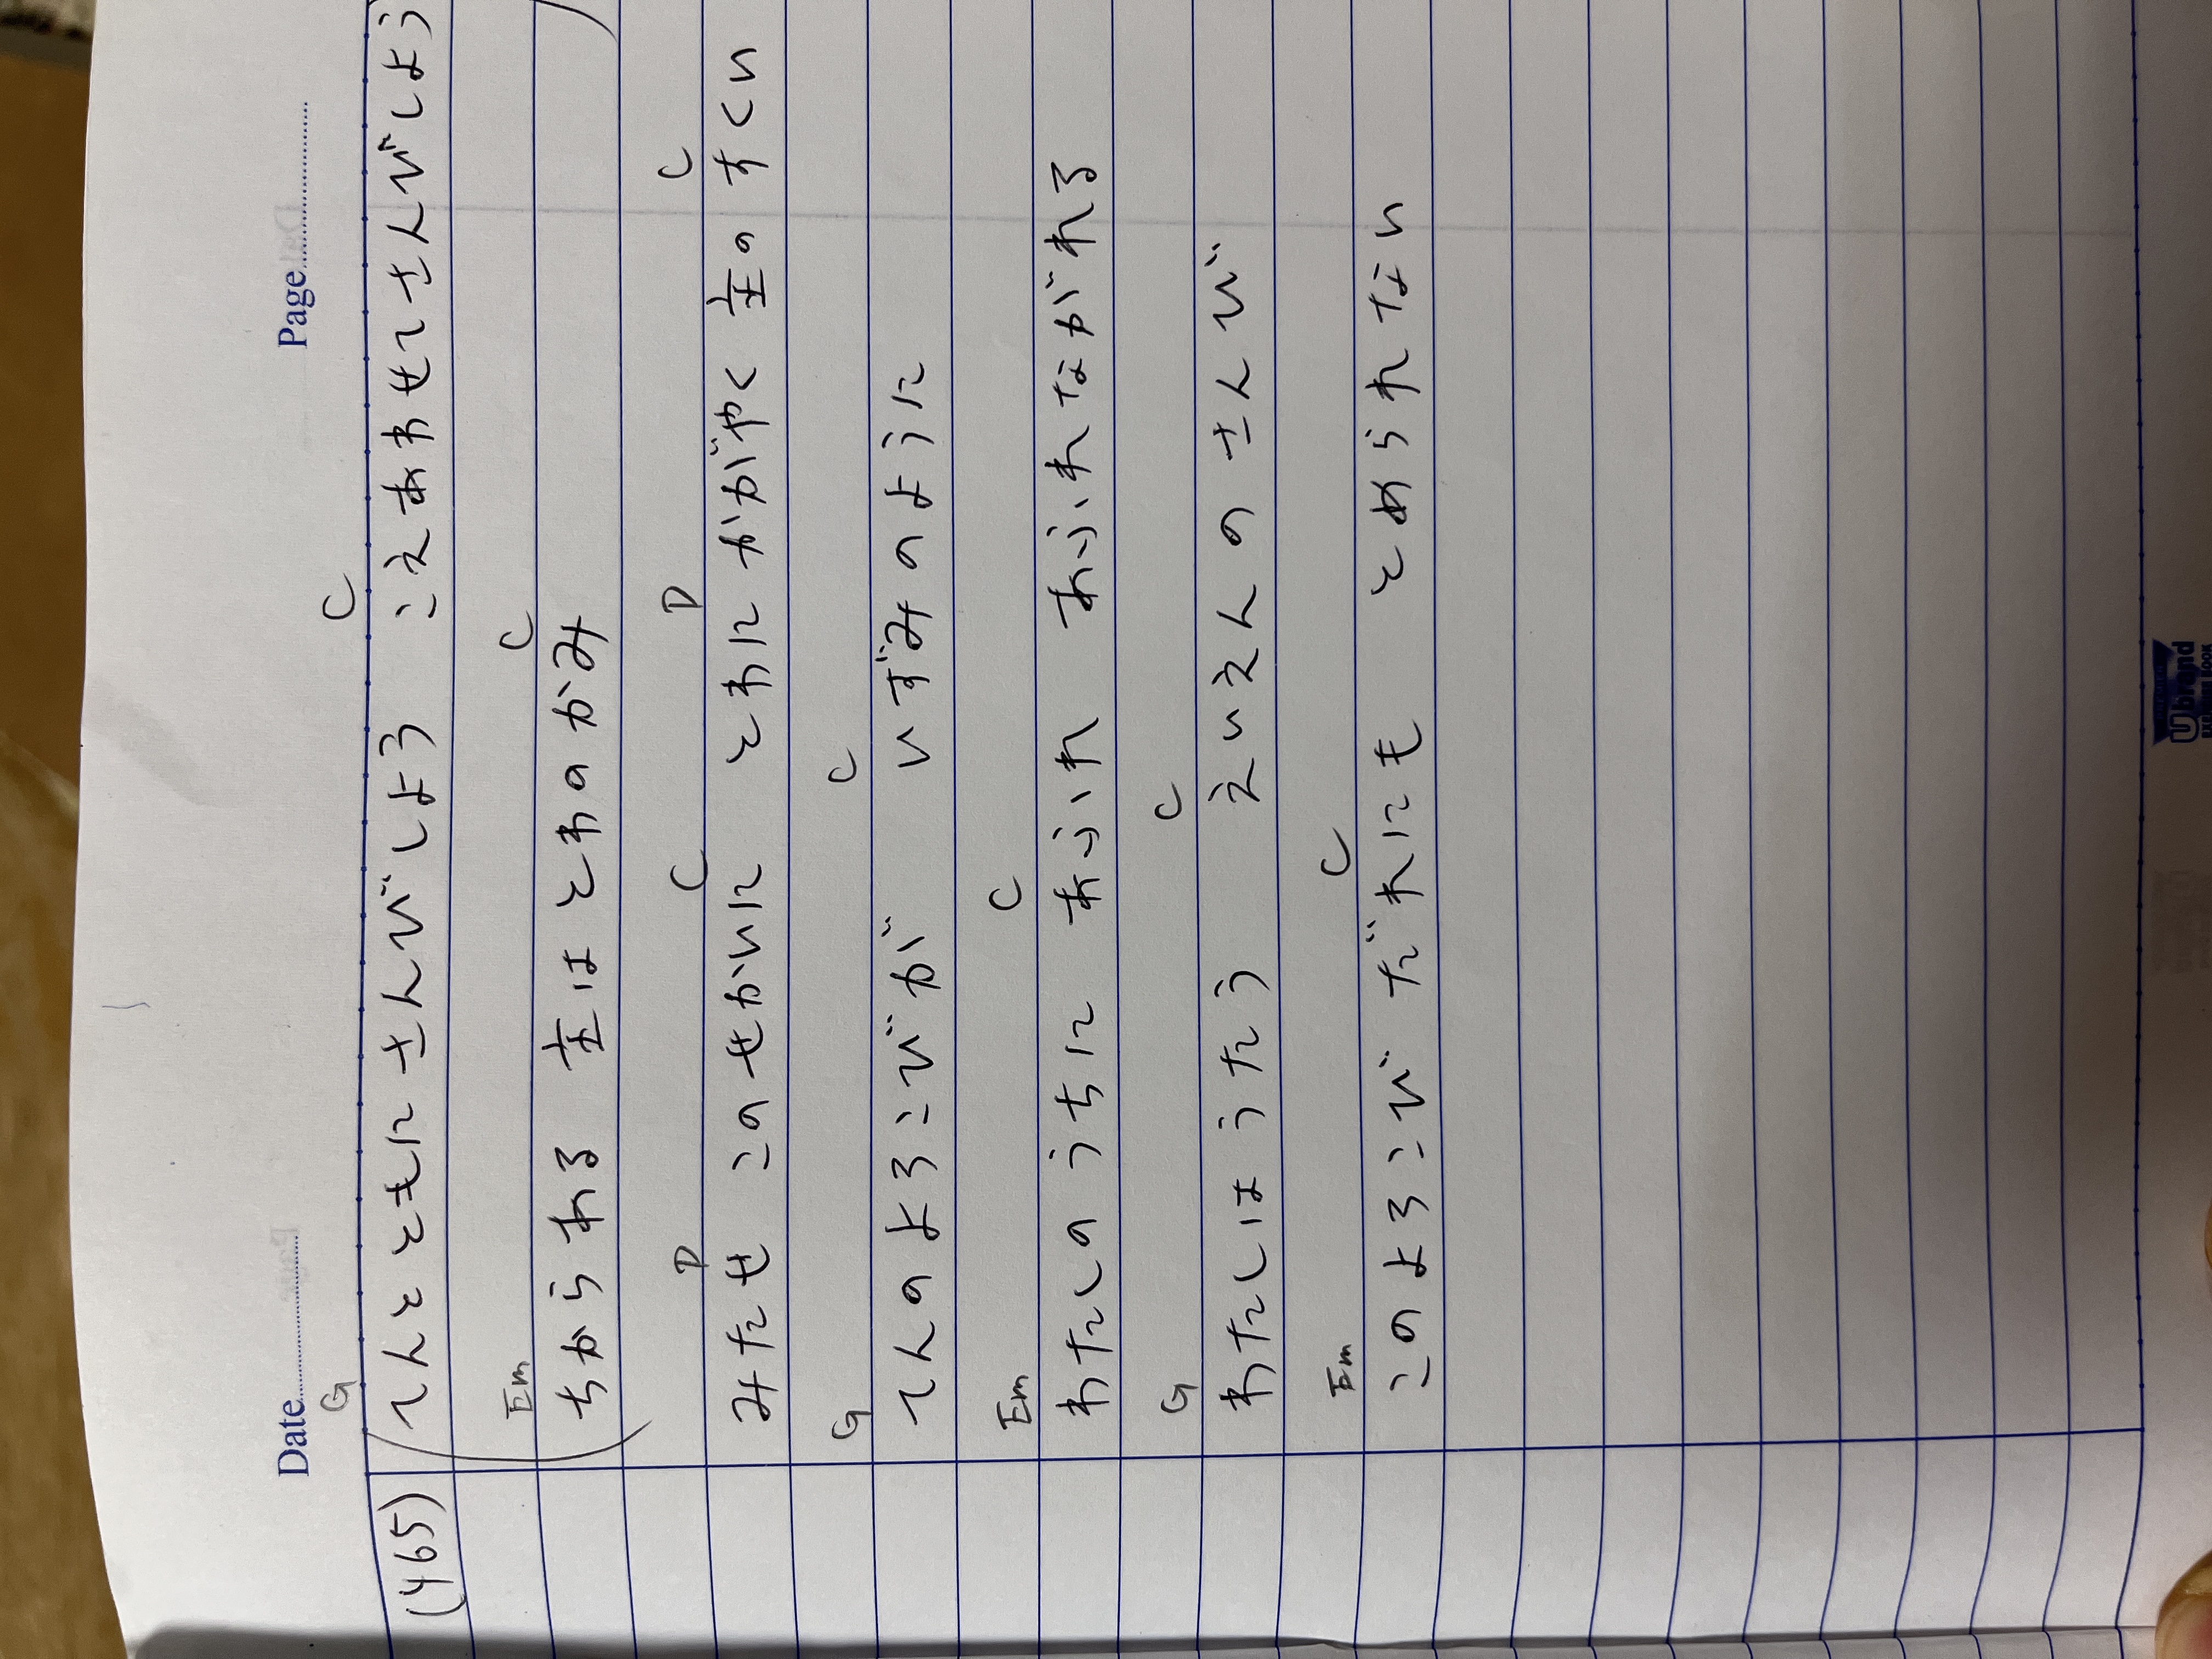 Date Page
G C
(465) てんとともに さんびしよう こえあわせてさんびしよう
Em C
ちからある 主はとわのかみ
D C D C
みたせ このせかいに とわに かがやく 主のすくい
G C
てんのよろこびが いずみのように
Em C
わたしのうちに あふれ あふれながれる
G C
わたしはうたう えいえんのさんび
Em C
このよろこび だれにも とめられない
Ubrand